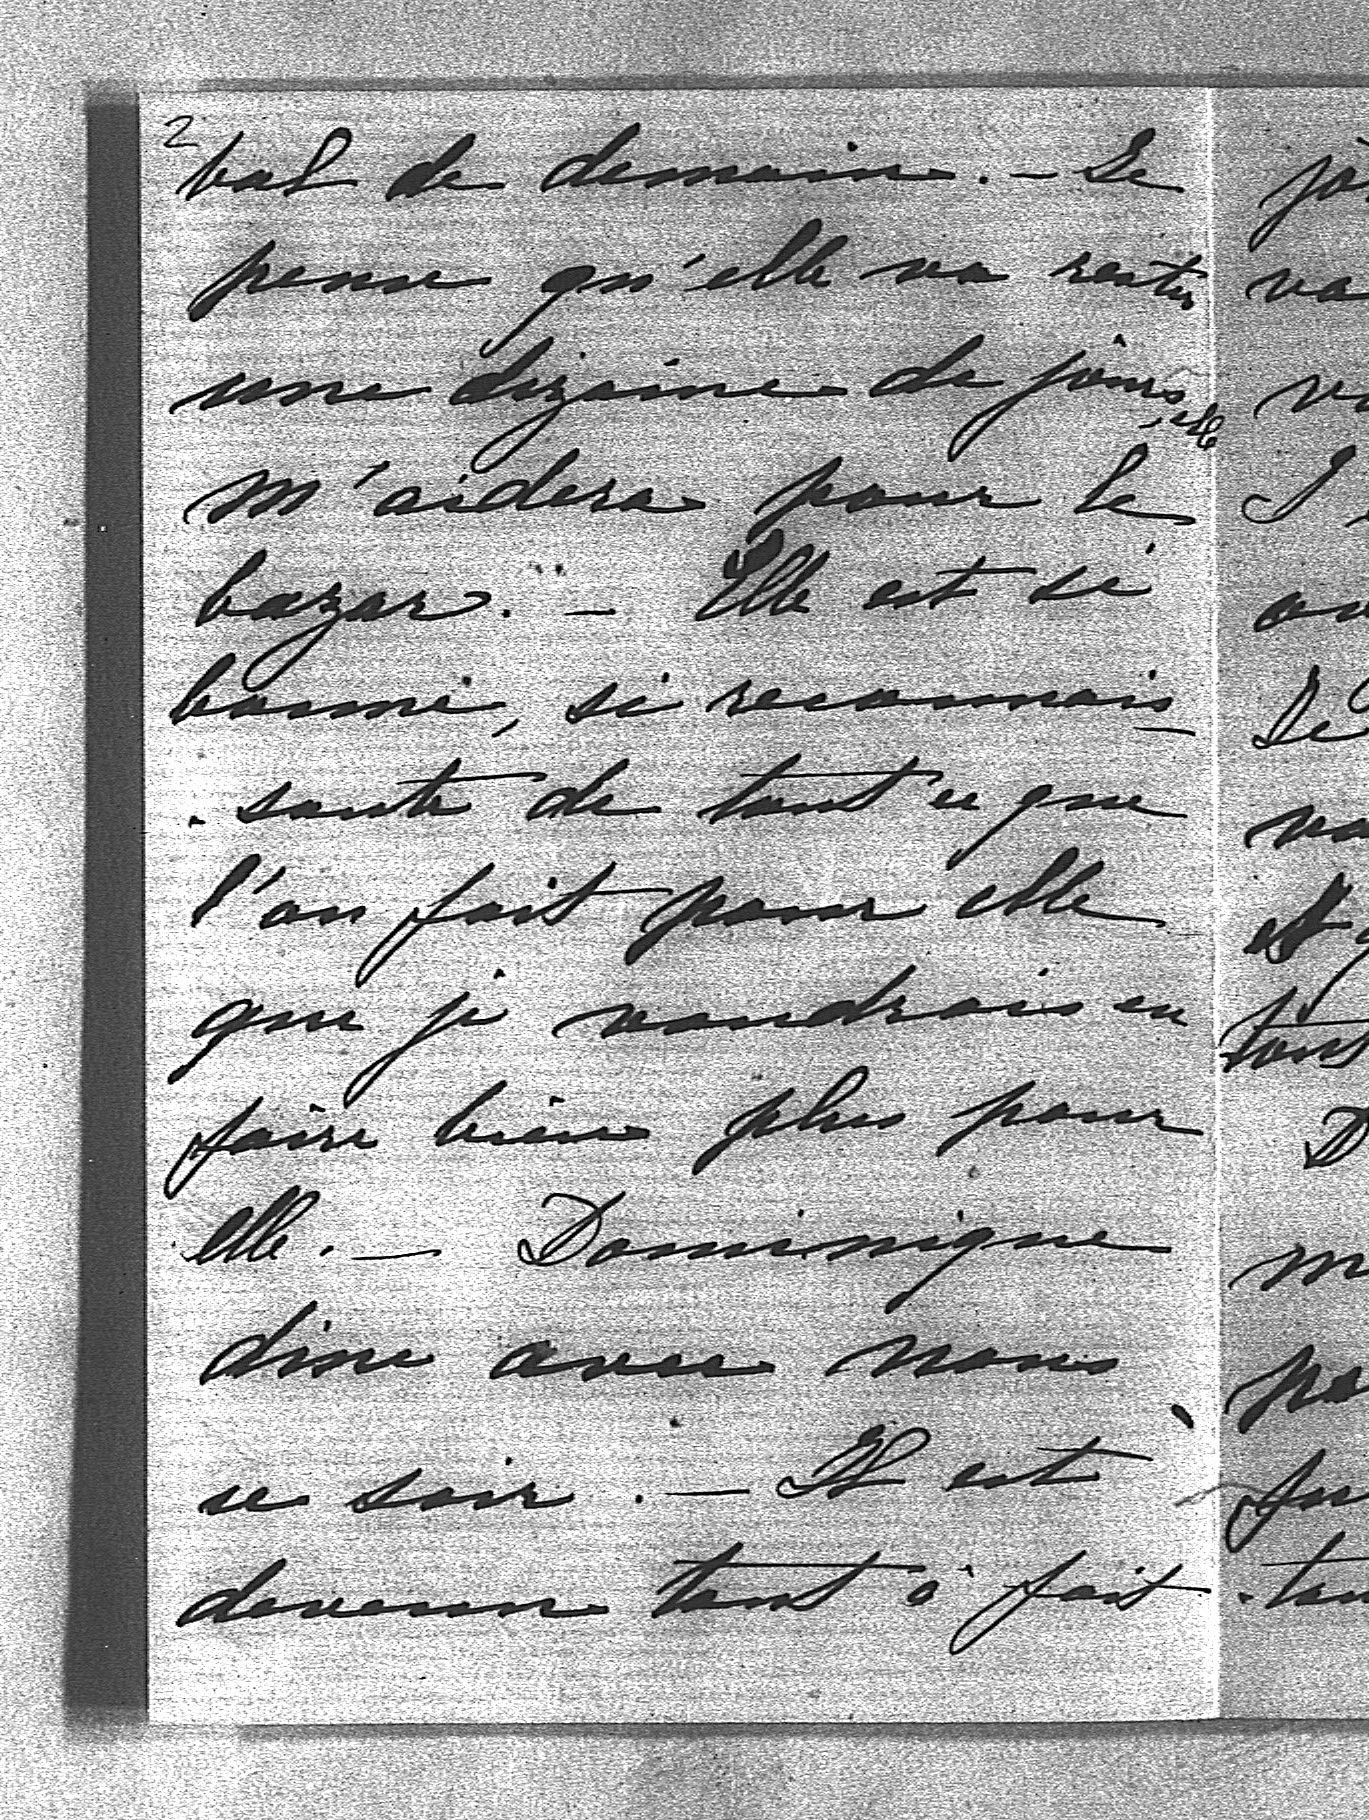 2
bal de demain. - Je
pense qu'elle va rester
une dizaine de jours, elle
m'aidera pour le
bazar. - Elle est si
bonne, si reconnais
- sante de tout ce que
l'on fait pour elle
que je voudrais en
faire bien plus pour
elle. - Dominique
dine avec nous
ce soir. - Il est
devenu tout à fait